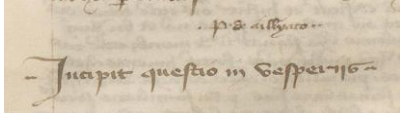 P. de ailhyaco
Incipit questio in vesperijs